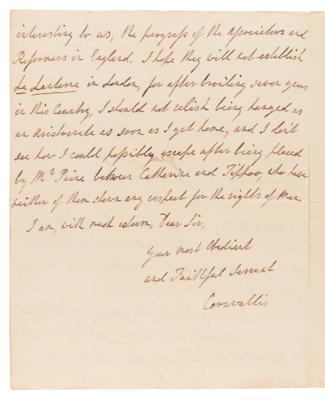 interesting to us, the progress of the associators and
Reformers in England. I hope they will not establish
La Lanterne in London, for after broiling seven years
in this Country, I should not relish being hanged as
an Aristocrate as soon as I get home, and I don't
see how I could possibly escape after being placed
by Mr. Paine between Catherine and Tippoo, who have
neither of them shewn any respect for the rights of man.
I am, with much esteem, Dear Sir,
Your most Obedient
and Faithful Servant
Cornwallis